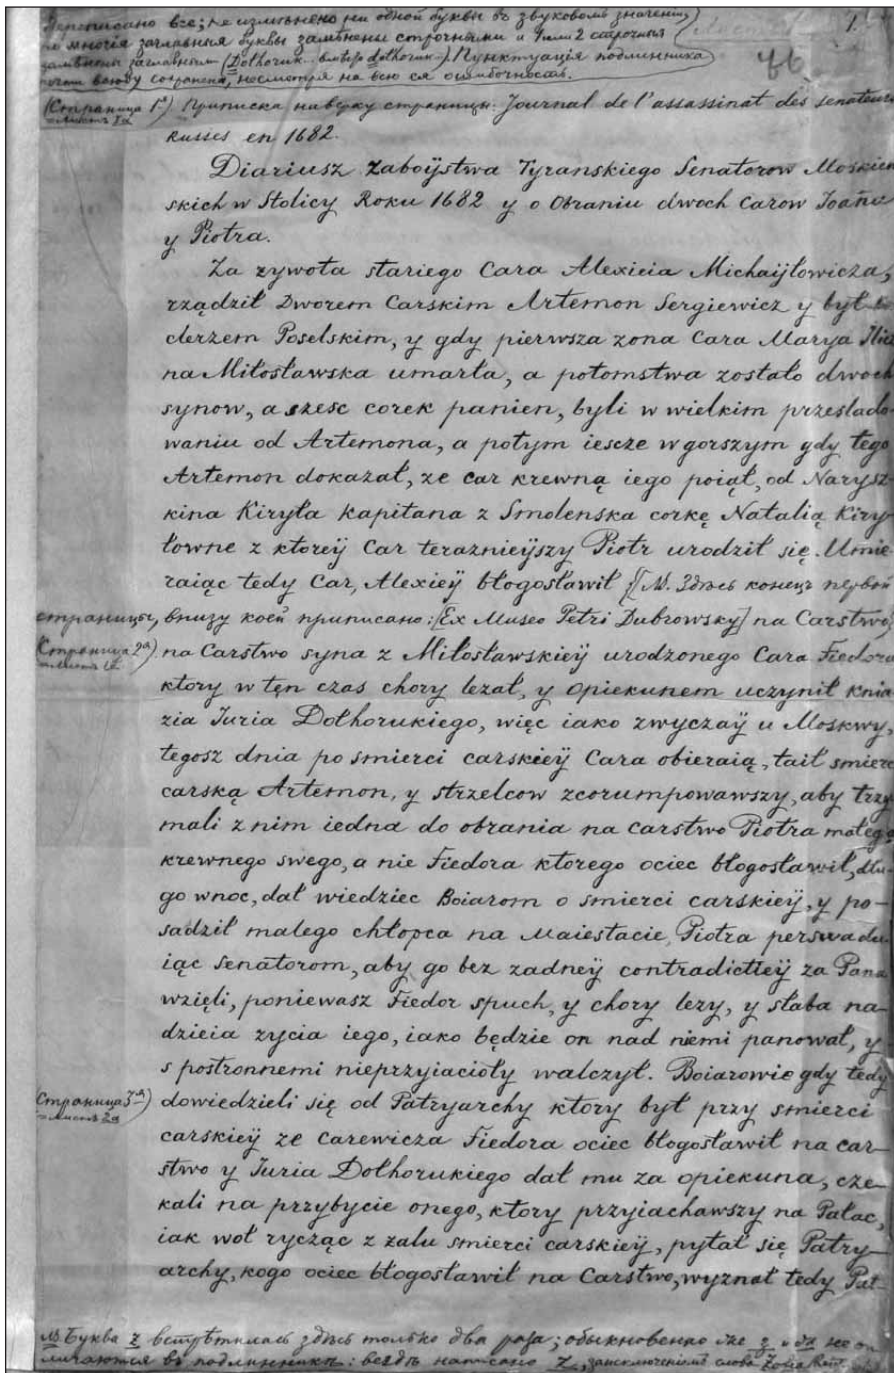 Переписано все; не измѣнено ни одной буквы въ звуковомъ значеніи,
но многія заглавныя буквы замѣнены строчными и 1 или 2 строчныя
замѣнены заглавными (Dothoruk.. вмѣсто dothoruk..). Пунктуація подлинника
почти всюду сохранена, несмотря на всю ея ошибочность.
1.
46
(Страница 1ª) Приписка наверху страницы: Journal de l'assassinat des senateurs
=Листъ 1a
Russes en 1682.
Diariusz Zaboÿstwa Tyranskiego Senatorow Moskiew
skich w Stolicy Roku 1682 y o Obraniu dwoch Carow Joanna
y Piotra.
Za zywota stariego Cara Alexieia Michaÿłowicza,
rządził Dworem Carskim Artemon Sergiewicz y był
clerzem Poselskim, y gdy pierwsza zona Cara Marya Ilic
na Miłosławska umarła, a potomstwa zostało dwoch
synow, a szesc corek panien, byli w wielkim przeslado
waniu od Artemona, a potym iescze w gorszym gdy tego
Artemon dokazał, ze car krewną iego poiął, od Narysz
kina Kiryła Kapitana z Smolenska corkę Natalią Kiry
łowne z ktoreÿ Car teraznieÿszy Piotr urodził się. Umie
raiąc tedy Car, Alexieÿ błogosławił [N. Здѣсь конецъ первой
страницы, внизу коей приписано: [Ex Museo Petri Dubrowsky] na Carstwo
(Страница 2ª) na Carstwo syna z Miłosławskieÿ urodzonego Cara Fiedora
ktory w ten czas chory lezał, y opiekunem uczynił Knia
zia Juria Dołhorukiego, więc iako zwyczaÿ u Moskwy,
tegosz dnia po smierci carskieÿ Cara obieraią, taił smierc
carską Artemon, y strzelcow zcorumpowawszy, aby trzy
mali z nim iedna do obrania na carstwo Piotra małego
krewnego swego, a nie Fiedora ktorego ociec błogosławił, dłu-
go wnoc, dał wiedziec Boiarom o smierci carskieÿ, y po-
sadził malego chłopca na Maiestacie Piotra perswadu
iąc senatorom, aby go bez zadneÿ contradictieÿ za Pana
wzięli, poniewasz Fiedor spuch, y chory lezy, y słaba na-
dzieia zycia iego, iako będzie on nad niemi panował, y
s postronnemi nieprzyiacioły walczył. Boiarowie gdy tedy
(Страница 3ª) dowiedzieli się od Patryarchy ktory był przy smierci
=Листъ 2a
carskieÿ ze carewicza Fiedora ociec błogosławił na car-
stwo y Juria Dołhorukiego dał mu za opiekuna, cze-
kali na przybycie onego, ktory przyiachawszy na Pałac,
iak woł rycząc z zalu smierci carskieÿ, pytał się Patry-
archy, kogo ociec błogosławił na Carstwo, wyznał tedy Pat-
Буква z встрѣтилась здѣсь только два раза; обыкновенно же
личаются въ подлинникѣ: вездѣ написано z, заисключеніемъ слова Zosia